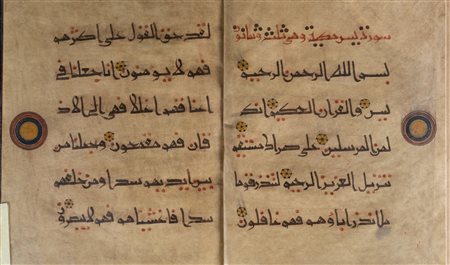 سورة يس مكية وهي ثلث وثمانون
بسم الله الرحمن الرحيم
يس والقران الحكيم انك
لمن المرسلين على صراط مستقيم
تنزيل العزيز الرحيم لتنذر قوما
ما انذر اباوهم فهم غافلون
لقد حق القول على اكثرهم
فهم لا يومنون انا جعلنا في
اعناقهم اغلالا فهي الى الاذ
قان فهم مقمحون وجعلنا من
بين ايديهم سدا ومن خلفهم
سدا فاغشيناهم فهم لا يبصرون